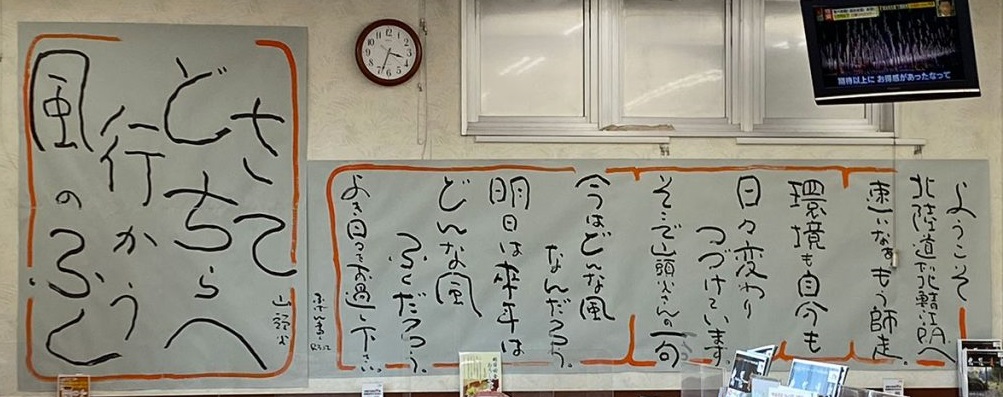 ようこそ
北陸道下り北鯖江PAへ
速いなぁもう師走
環境も自分も
日々変わり
つづけています
そこで山頭火さんの一句
今はどんな風
なんだろう
明日は来年は
どんな風
ふくだろう
よき日々をお過し下さい
さてどちらへ
行かう
風のふく
山頭火
期待以上に お得感があったなって